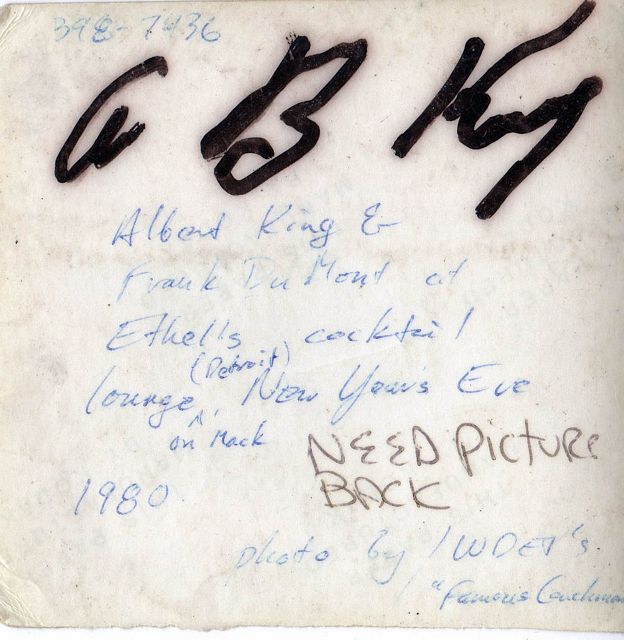 398-7436
a B King
Albert King &
Frank DuMont at
Ethell's cocktail
(Detroit)
lounge, New Year's Eve
on Mack
NEED PICTURE
BACK
1980
photo by WDET's
"Famous Coachman